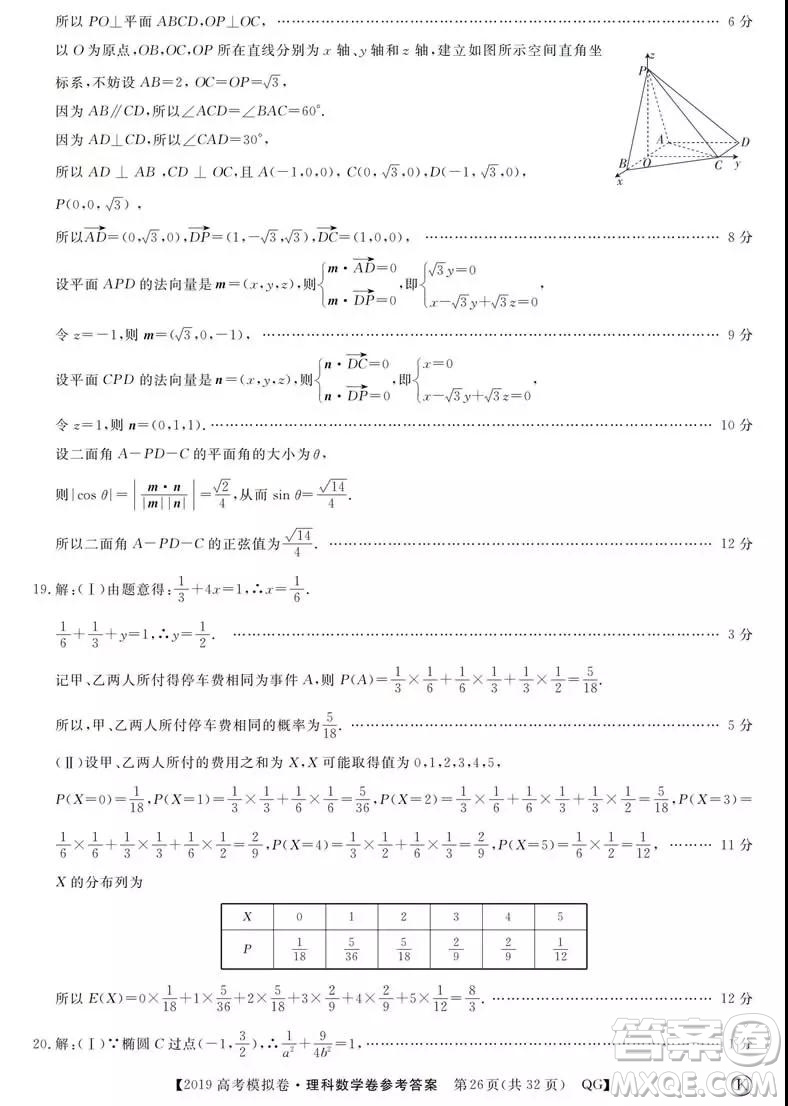 所以 PO⊥平面 ABCD,OP⊥OC, ………… 6 分
以 O 为原点,OB,OC,OP 所在直线分别为 x 轴、y 轴和 z 轴,建立如图所示空间直角坐
标系,不妨设 AB=2, OC=OP=√3,
因为 AB∥CD,所以∠ACD=∠BAC=60°.
因为 AD⊥CD,所以∠CAD=30°,
所以 AD ⊥ AB ,CD ⊥ OC,且 A(-1,0,0), C(0,√3,0),D(-1,√3,0),
P(0,0,√3),
z
P
A
D
B
O
C
y
x
所以AD→=(0,√3,0),DP→=(1,-√3,√3),DC→=(1,0,0), ………… 8 分
设平面 APD 的法向量是 m=(x,y,z),则{m·AD→=0 m·DP→=0,即{√3y=0 x-√3y+√3z=0
令 z=-1,则 m=(√3,0,-1), ………… 9 分
设平面 CPD 的法向量是 n=(x,y,z),则{n·DC→=0 n·DP→=0,即{x=0 x-√3y+√3z=0
令 z=1,则 n=(0,1,1). ………… 10 分
设二面角 A-PD-C 的平面角的大小为θ,
则|cos θ|=|m·n/|m||n||=√2/4,从而 sin θ=√14/4.
所以二面角 A-PD-C 的正弦值为√14/4. ………… 12 分
19.解:(Ⅰ)由题意得:1/3+4x=1,∴x=1/6.
1/6+1/3+y=1,∴y=1/2. ………… 3 分
记甲、乙两人所付得停车费相同为事件 A,则 P(A)=1/3×1/6+1/6×1/3+1/3×1/6+1/6×1/3+1/6×1/3=5/18.
所以,甲、乙两人所付停车费相同的概率为5/18. ………… 5 分
(Ⅱ)设甲、乙两人所付的费用之和为 X,X 可能取得值为 0,1,2,3,4,5,
P(X=0)=1/18,P(X=1)=1/3×1/3+1/6×1/6=5/36,P(X=2)=1/3×1/6+1/6×1/3+1/3×1/2=5/18,P(X=3)=
1/6×1/6+1/6×1/3+1/6×1/2=2/9,P(X=4)=1/6×1/3+1/6×1/3=2/9,P(X=5)=1/6×1/2=1/12, ……… 11 分
X 的分布列为
X 0 1 2 3 4 5
P 1/18 5/36 5/18 2/9 2/9 1/12
所以 E(X)=0×1/18+1×5/36+2×5/18+3×2/9+4×2/9+5×1/12=8/3. ………… 12 分
20.解:(Ⅰ)∵椭圆 C 过点(-1,3/2),∴1/a²+9/4b²=1 ………… 1 分
【2019 高考模拟卷·理科数学卷参考答案 第 26 页(共 32 页) QG】
K
答案圈